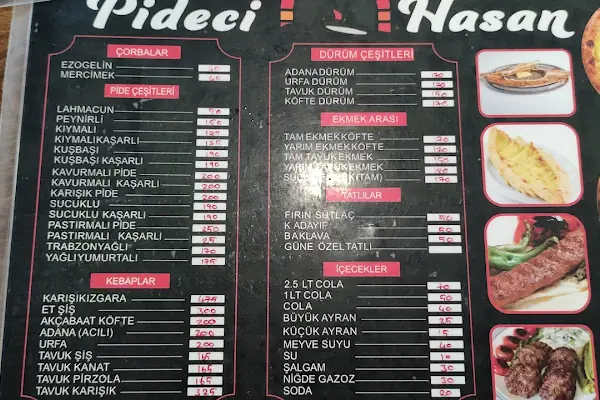 Pideci Hasan
ÇORBALAR
EZOGELİN 40
MERCİMEK 40
PİDE ÇEŞİTLERİ
LAHMACUN 50
PEYNİRLİ 150
KIYMALI 175
KIYMALI KAŞARLI 175
KUŞBAŞI 190
KUŞBAŞI KAŞARLI 190
KAVURMALI PİDE 200
KAVURMALI KAŞARLI 200
KARIŞIK PİDE 200
SUCUKLU 190
SUCUKLU KAŞARLI 190
PASTIRMALI PİDE 250
PASTIRMALI KAŞARLI 25
TRABZONYAĞLI 170
YAĞLI YUMURTALI 175
KEBAPLAR
KARIŞIKIZGARA 475
ET ŞİŞ 300
AKÇABAAT KÖFTE 200
ADANA (ACILI) 200
URFA 200
TAVUK ŞİŞ 165
TAVUK KANAT 165
TAVUK PİRZOLA 165
TAVUK KARIŞIK 325
DÜRÜM ÇEŞİTLERİ
ADANA DÜRÜM
URFA DÜRÜM
TAVUK DÜRÜM
KÖFTE DÜRÜM 170
EKMEK ARASI
TAM EKMEK KÖFTE
YARIM EKMEK KÖFTE 120
TAM TAVUK EKMEK 150
YARIM TAVUK EKMEK
(TAM) 170
TATLILAR
FIRIN SÜTLAÇ 50
K ADAYIF 50
BAKLAVA 50
GÜNE ÖZEL TATLI
İÇECEKLER
2.5 LT COLA 70
1LT COLA 50
COLA 40
BÜYÜK AYRAN 25
KÜÇÜK AYRAN 15
MEYVE SUYU 40
SU 10
ŞALGAM 30
NİĞDE GAZOZ 30
SODA 20